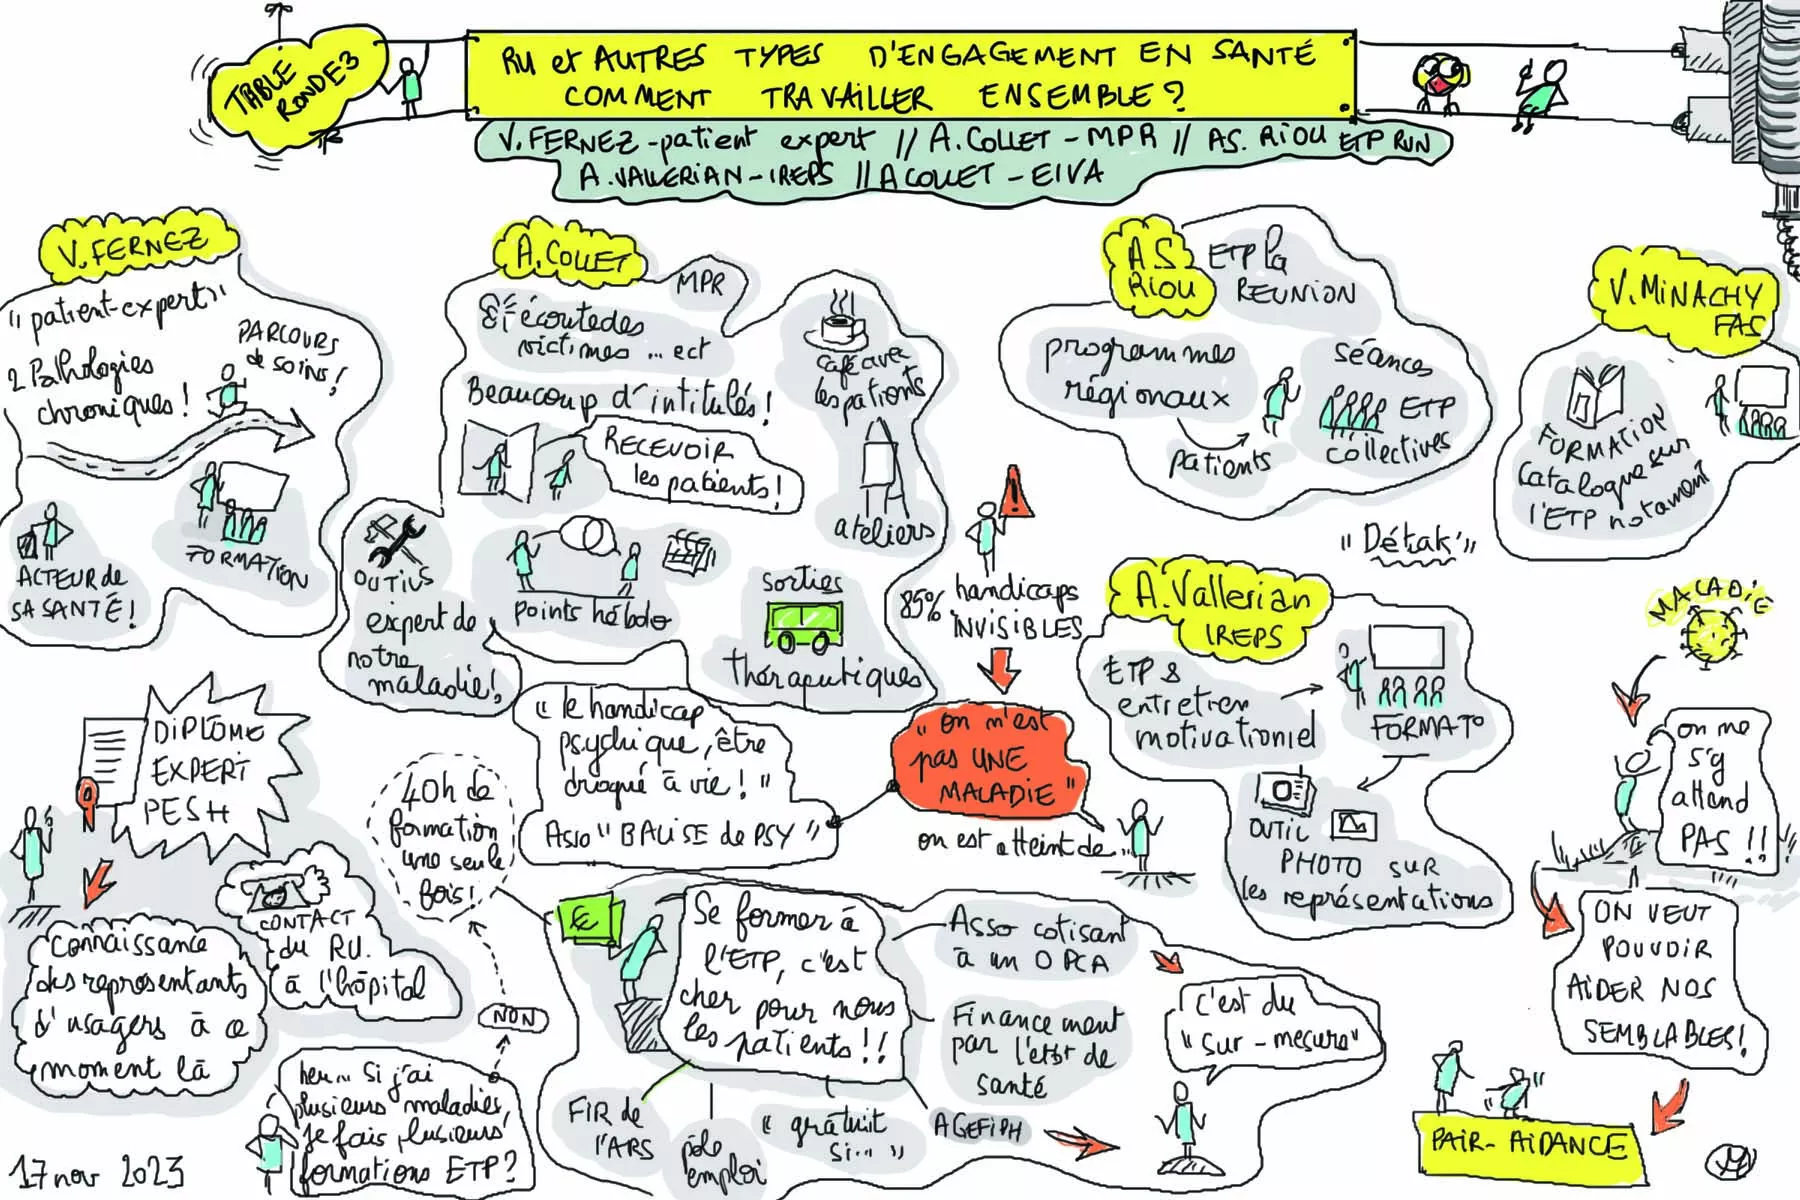 TABLE
RONDE 3
RU et AUTRES TYPES D'ENGAGEMENT EN SANTÉ
COMMENT TRAVAILLER ENSEMBLE?
V. FERNEZ - patient expert // A. COLLET - MPR // AS. RIOU ETP RUN
A. VALLERIAN - IREPS // A COLLET - EIVA
V. FERNEZ
"patient-expert"
2 Pathologies
chroniques!
PARCOURS
de SOINS!
ACTEUR de
SA SANTÉ!
FORMATION
A. COLLET
MPR
écoute des
victimes ... ect
Beaucoup d'intitulés!
RECEVOIR
les patients!
café avec
les patients
ateliers
OUTILS
expert de
notre
maladie!
points hébdo
sorties
thérapeutiques
85% handicaps
INVISIBLES
"on n'est
pas UNE
MALADIE"
on est atteint de...
"le handicap
psychique, être
drogué à vie!"
Asso "BALISE de PSY"
A S.
RIOU
ETP la
REUNION
programmes
régionaux
patients
séances
ETP
collectives
V. MINACHY
FAS
FORMATION
Catalogue sur
l'ETP notament
"Détak"
A. Vallerian
IREPS
ETP &
entretien
motivationiel
FORMATO
OUTIL
PHOTO SUR
les représentations
MALADIE
on ne
s'y
attend
PAS!!
ON VEUT
POUVOIR
AIDER NOS
SEMBLABLES!
PAIR-AIDANCE
DIPLÔME
EXPERT
PESH
connaissance
des représentants
d'usagers à ce
moment là
CONTACT
du RU.
à l'hôpital
40h de
formation
une seule
fois!
NON
heu... Si j'ai
plusieurs maladies,
je fais plusieurs
formations ETP?
€
Se former à
l'ETP, c'est
cher pour nous
les patients!!
Asso cotisant
à un OPCA
Financement
par l'etbt de
santé
FIR de
l'ARS
pôle
emploi
"gratuit
si..."
AGEFIPH
c'est du
"sur-mesure"
17 nov 2023